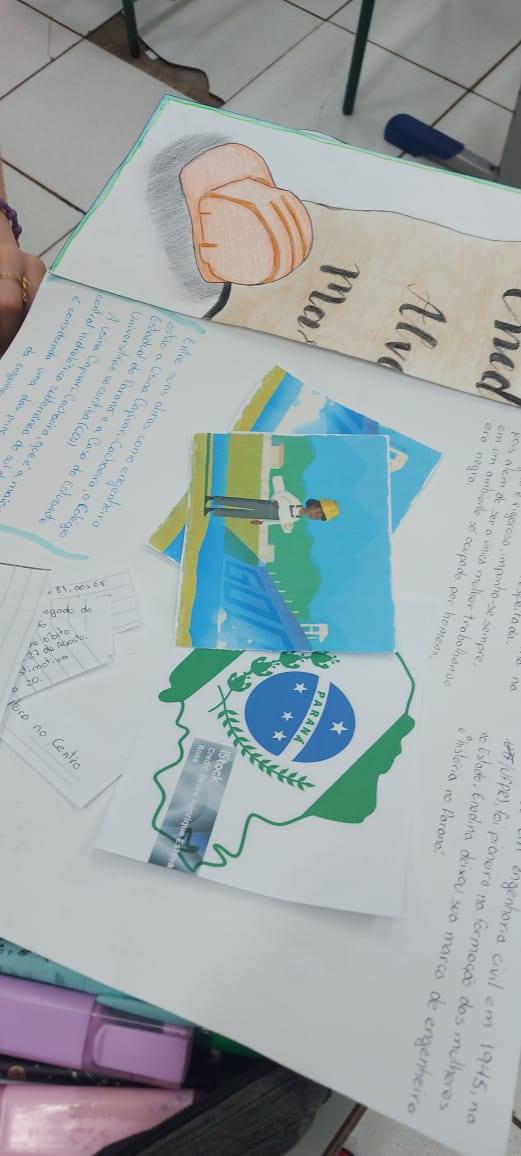 Ened
Alva
Ma
speitada.
no
e rigorosa, impunha-se sempre,
pois além de ser a única mulher trabalhando
em um ambiente só ocupado por homens,
era negra.
em engenharia civil em 1945, na
(UFPR), foi pioneira na formação das mulheres
no Estado. Enedina deixou sua marca de engenheira
e história no Paraná.
GO
PARANÁ
iStock
Credit: Pedro Henrique Esteva
Boas
Entre suas obras como engenheira
estão a Usina Capivari-Cachoeira, o Colégio
Estadual do Paraná e a Casa do Estudante
Universitário de Curitiba (CEU).
A usina Capivari-Cachoeira, que é a maior
central hidrelétrica subterrânea do sul d
é considerada uma das prin
da engenh
egado de
no Centro